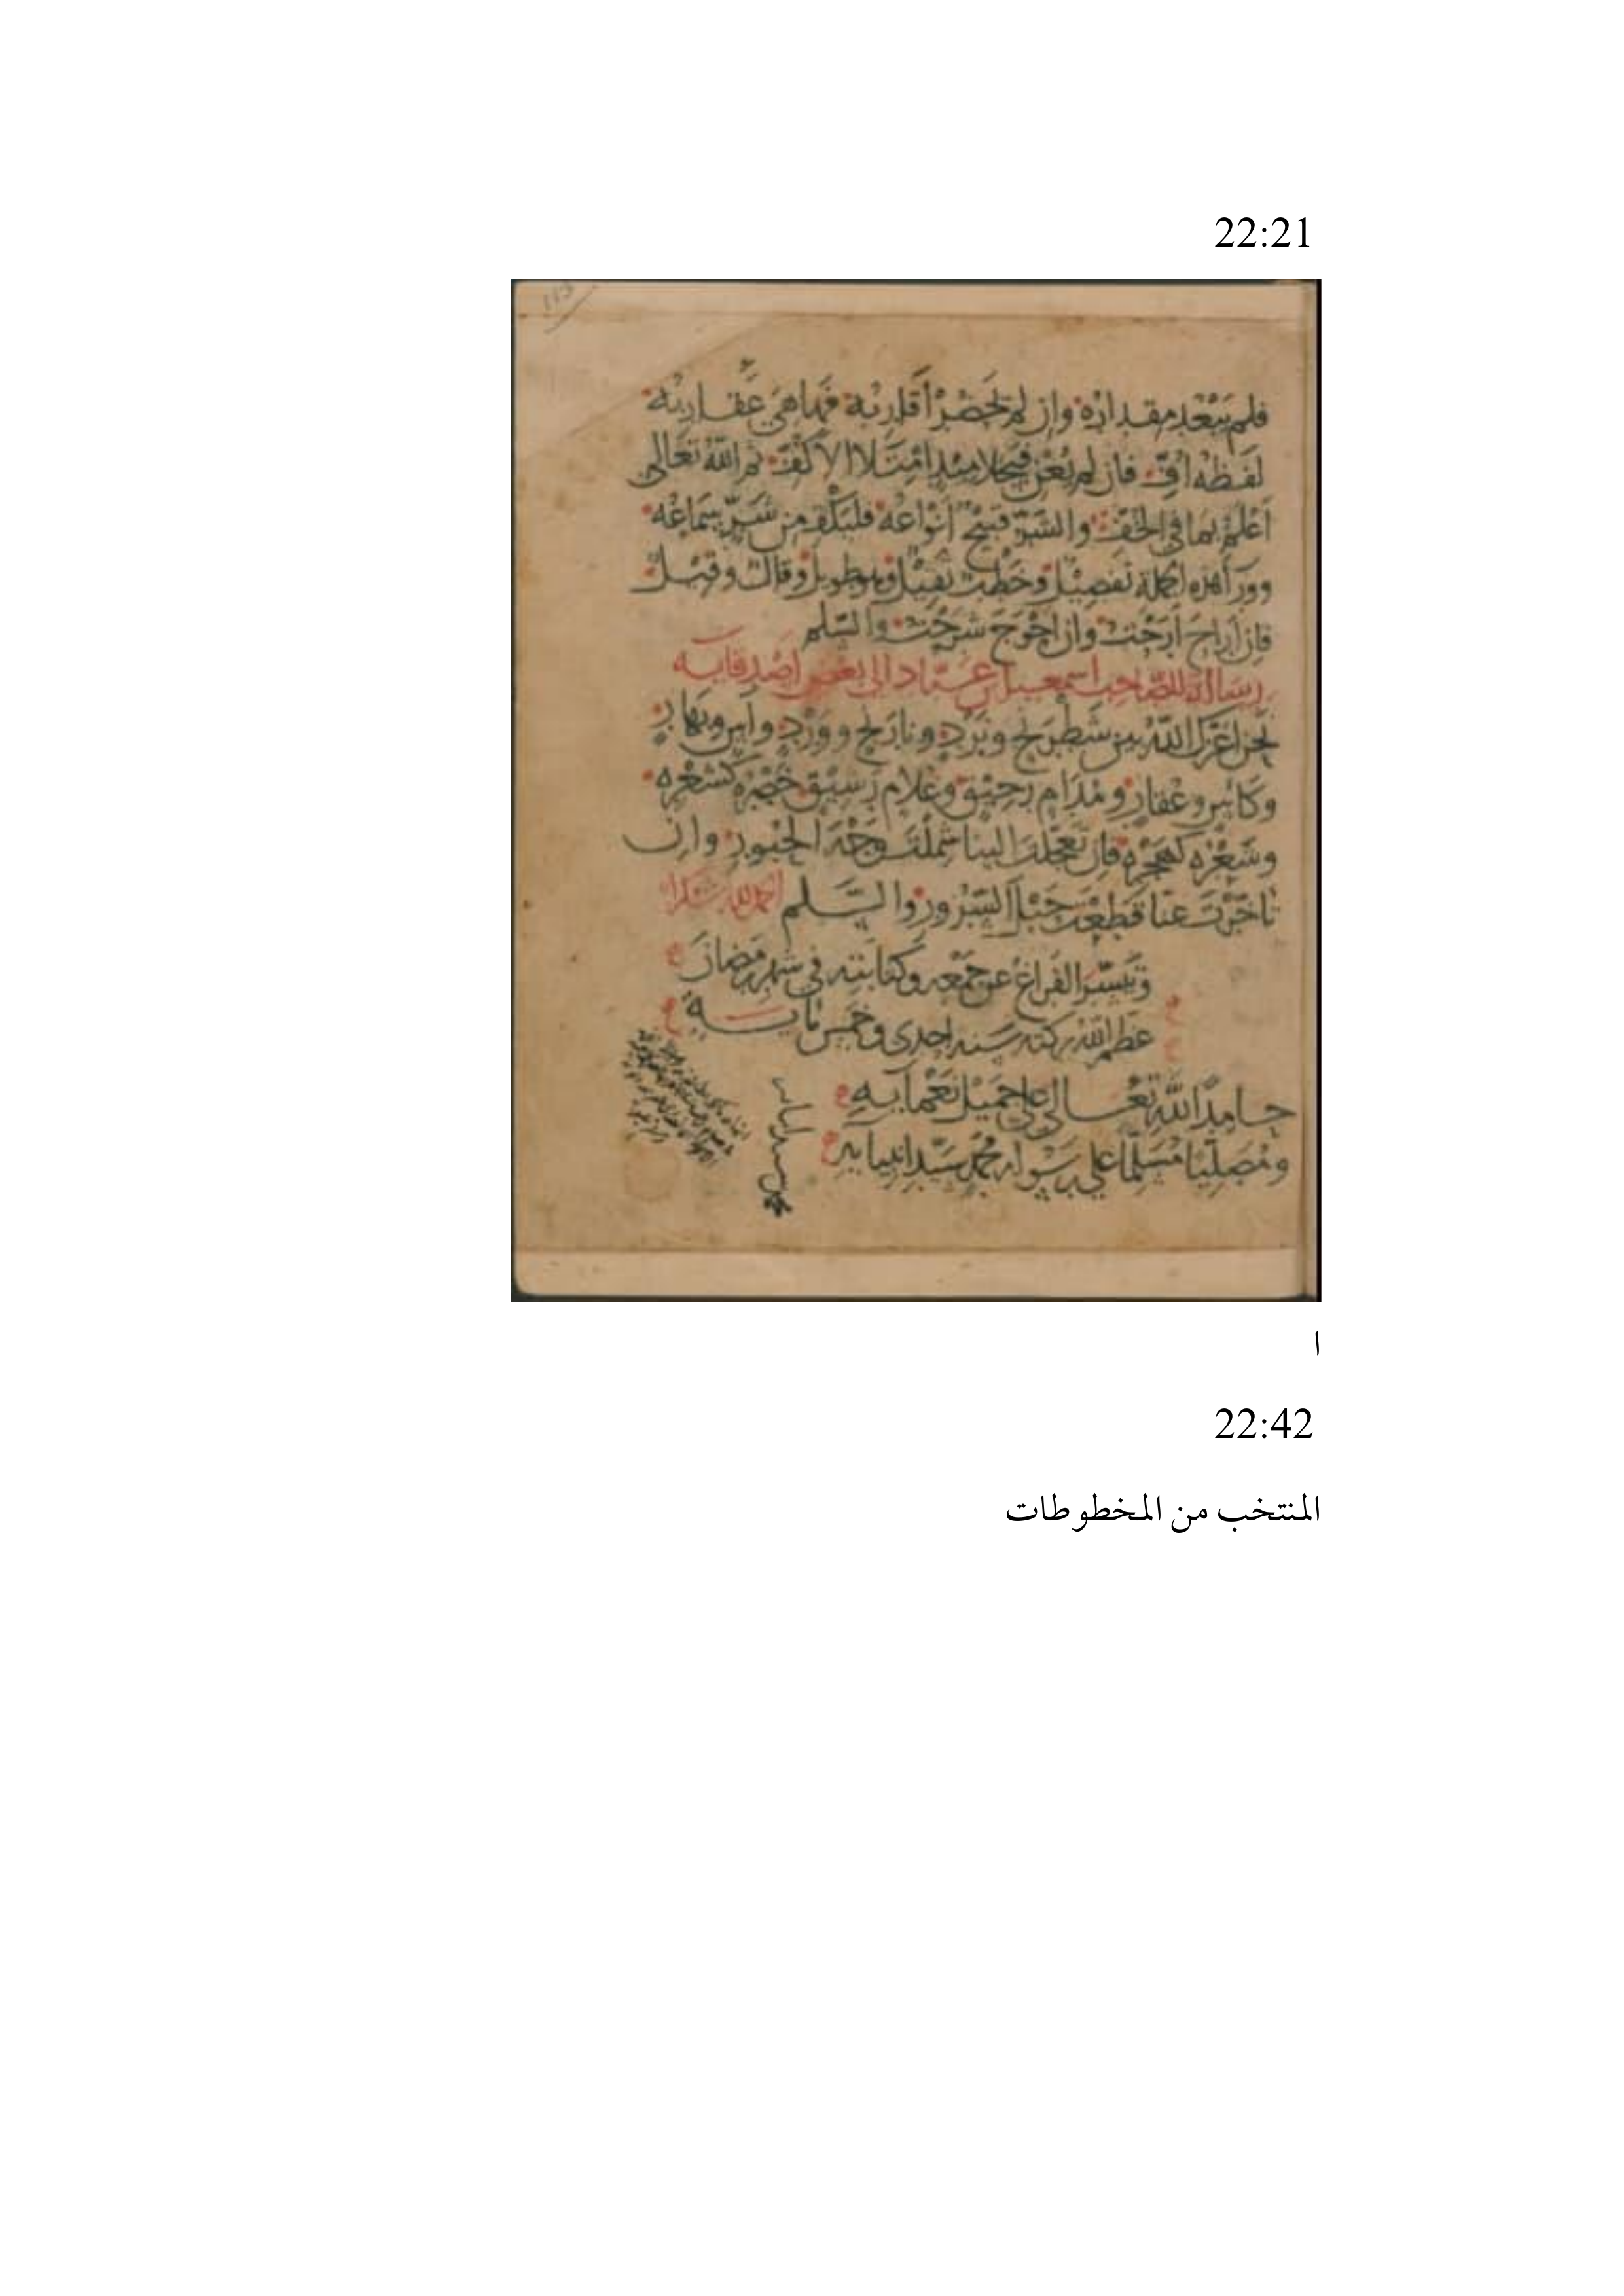 22:21
113
فلم يبعد مقداره وان لم تحضر أقاربه فها هي عقاربه
لفظه أفّ فان لم يغن
الا كفّ ثم الله تعالى
أعلم بما في الخفّ والشرّ قبيح أنواعه فليكف من شرّ سماعه
وورآ هذه الجملة تفصيل وخطب ثقيل وهو طويل وقال وقيل
فان أراح أرحت وان احوج شرحت والسلم
رسالة للصاحب اسمعيل بن عباد الى بعض اصدقايه
نحن اعزك الله بين شطرنج ونرد ونارنج وورد وآس وبهار
وكاس وعقار ومدام رحيق وغلام رشيق خصره كشعره
وشعره كهجره فان تعجلت الينا شملت وجه الحبور وان
تاخرت عنا قطعت حبل السرور والسلم الحمد لله شكرا
وتيسر الفراغ عن جمعه وكتابته في شهر رمضان
عظم الله بركته سنه احدى وخمس مايه
حامدا لله تعالى على جميل نعمايه
ومصليا مسلما على رسوله محمد سيد انبيايه
ا
22:42
المنتخب من المخطوطات